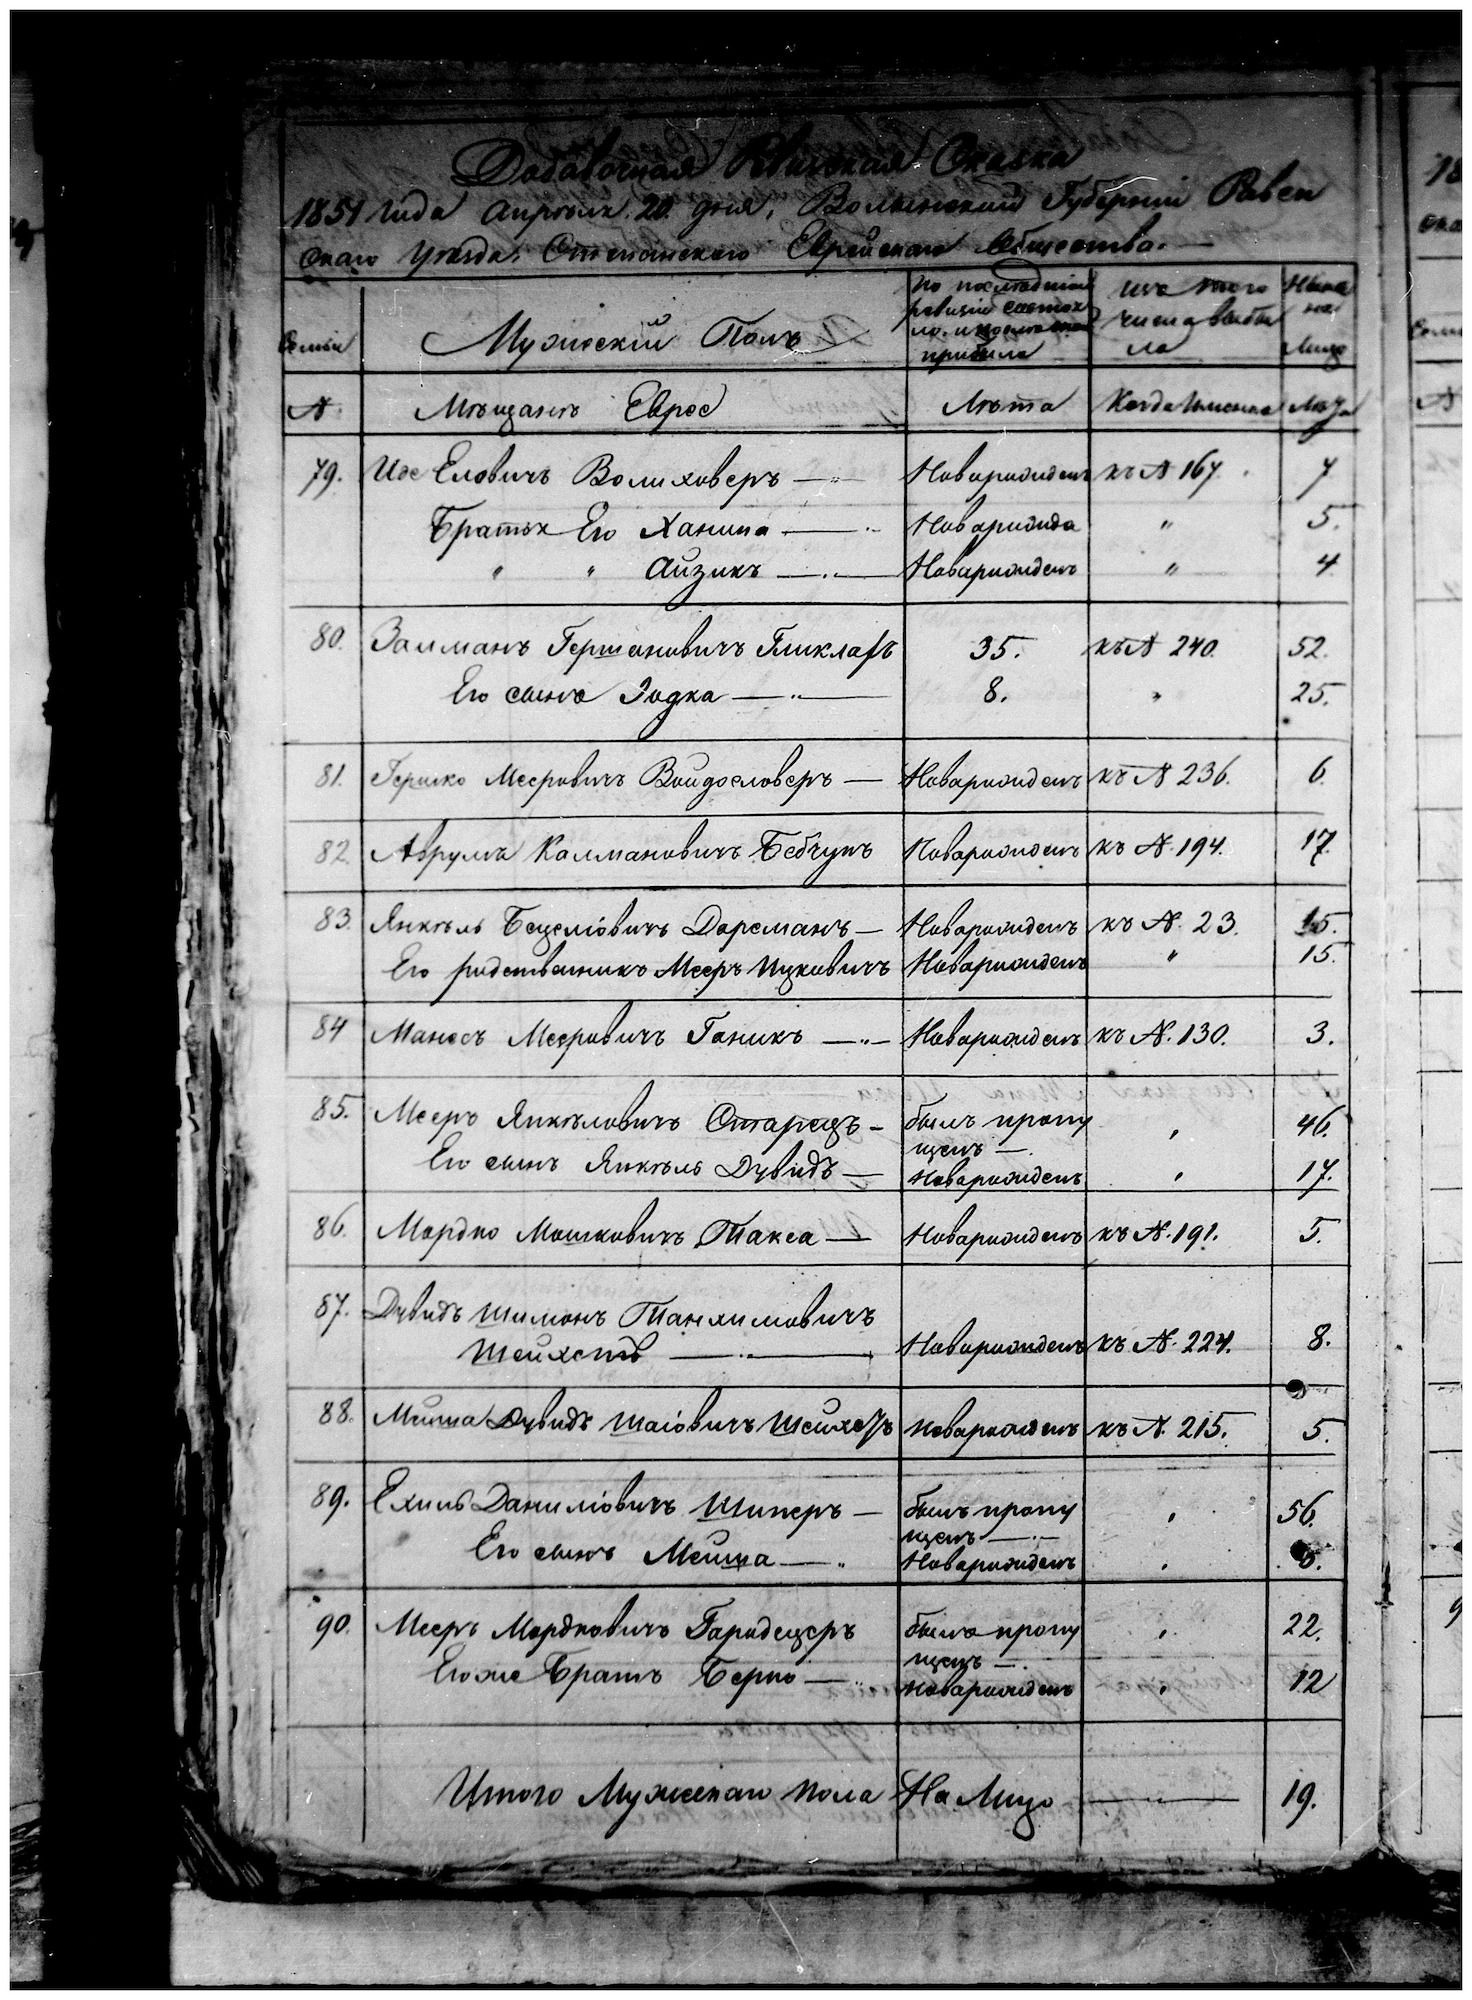 Добавочная Ревизская Сказка
1851 года апреля 20 дня, Волынской Губернiи Равен
скаго уезда, Степанского Еврейскаго Общества.
Семьи
Мужескiй Полъ
по последней
ревизiи состоя
ло и после того
прибыло
изъ того
числа выбы
ло
Ныне
на
лицо
№ Мещане Евреи Лета Когда именно Лета
79. Иос Еловичъ Волиховеръ — Новорожденъ къ № 167. 7
Братья Его Ханина — Новорожда " 5.
" " Айзикъ — Новорожденъ " 4
80. Залманъ Гершановичъ Гликлахъ 35. къ № 240. 52.
Его сынъ Іодка — 8. " 25.
81. Гершко Мееровичъ Войдословеръ — Новорожденъ къ № 236. 6.
82. Аврумъ Калмановичъ Бебчукъ Новорожденъ къ № 194. 17.
83. Янкель Бецелiовичъ Дорсманъ — Новорожденъ къ № 23. 15.
Его родственникъ Мееръ Ицковичъ Новорожденъ " 15.
84 Манесъ Мееровичъ Ганикъ — Новорожденъ къ № 130. 3.
85. Мееръ Янкеловичъ Старецъ — былъ пропу
щенъ — " 46.
Его сынъ Янкель Дувидъ — Новорожденъ " 17.
86. Мордко Мошковичъ Такса — Новорожденъ къ № 191. 5.
87. Дувидъ Шимонъ Танхимовичъ
Шейхетъ — Новорожденъ къ № 224. 8.
88. Мейша Дувидъ Шаiовичъ Шейхетъ Новорожденъ къ № 215. 5.
89. Ехиль Данилiовичъ Шиперъ — былъ пропу
щенъ — " 56.
Его сынъ Мейша — Новорожденъ "
90. Мееръ Мордковичъ Городецеръ былъ пропу
щенъ — " 22.
Его же Братъ Берко — Новорожденъ " 12
Итого Мужескаго пола На Лицо — 19.